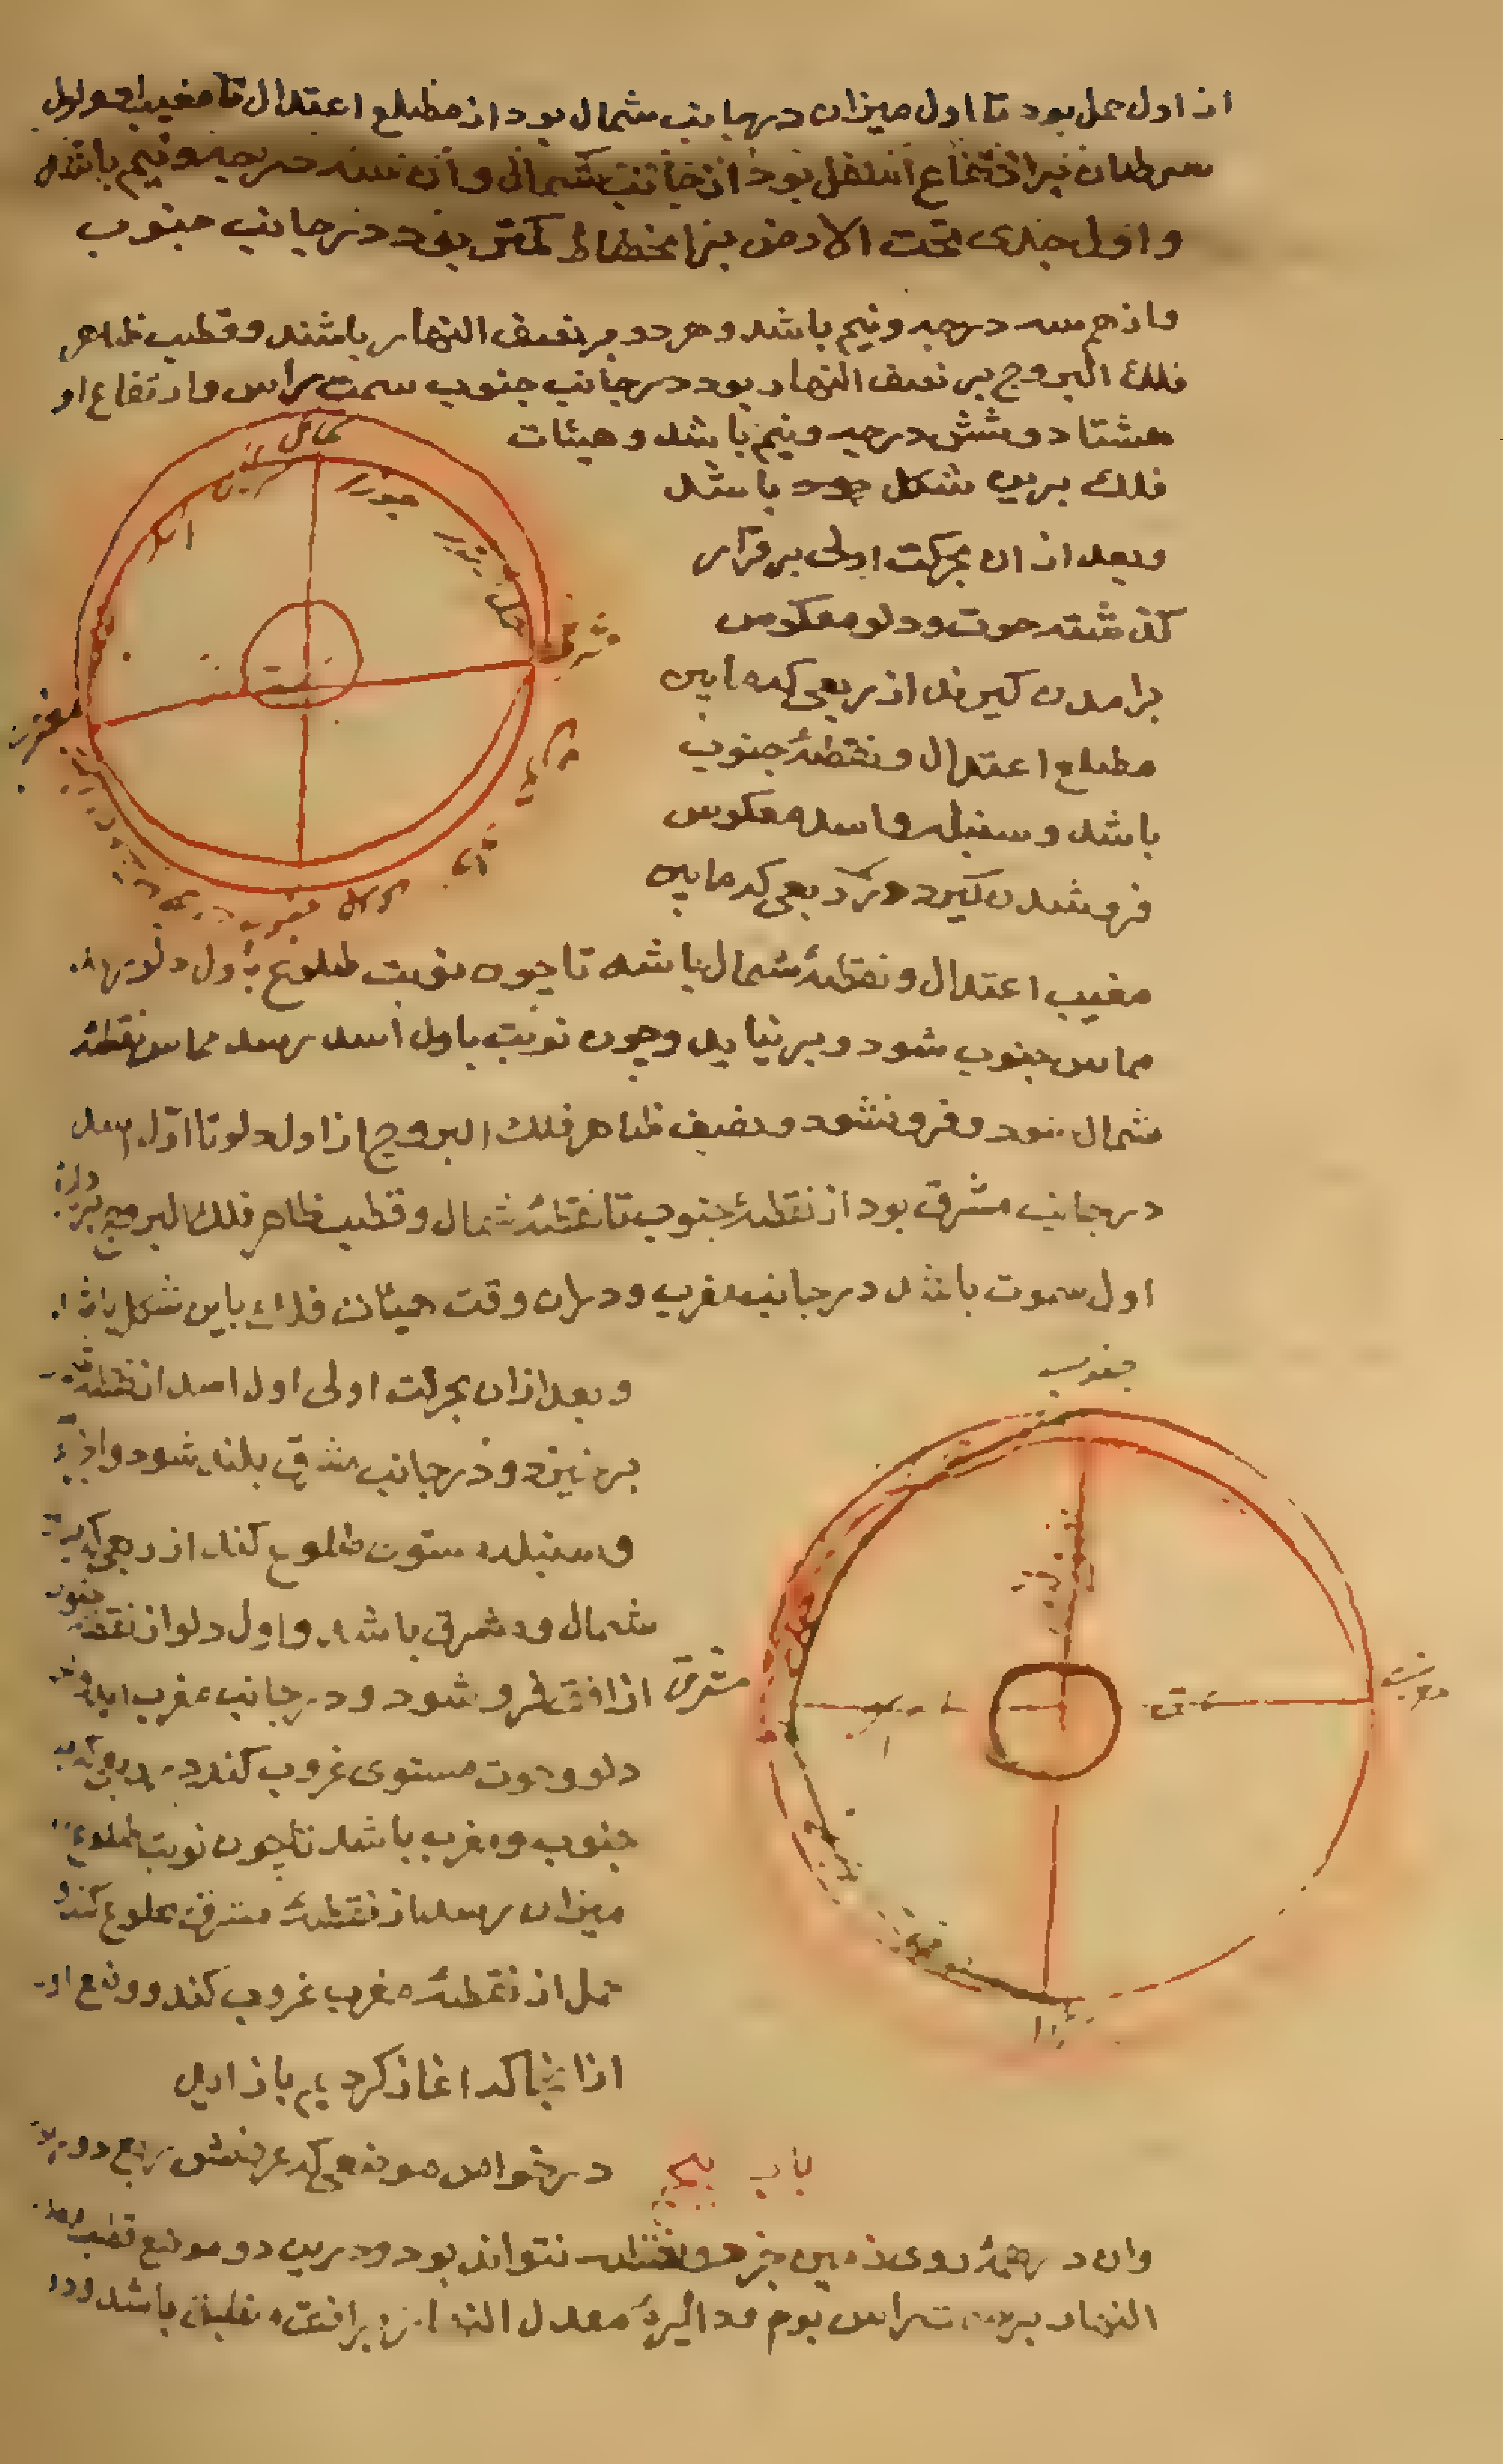 از اول حمل بود تا اول میزان در جانب شمال بود از مطلع اعتدال تا مغیب او و اول
سرطان نیز ارتفاع اسفل بود از جانب شمالی و آن سه درجه و نیم باشد
و اول جدی تحت الارض بزانحطاط کمتر بود در جانب جنوب
و از هم سه درجه و نیم باشد و هر دو بر نصف النهار باشند و قطب ظاهر
فلك البروج بر نصف النهار بود در جانب جنوب سمت راس و ارتفاع او
هشتاد و شش درجه و نیم باشد و هیئات
فلك برین شکل باشد
وبعد از ان بحرکت اولی بر قرار
کذشته حوت و دلو معکوس
برامدن کیرند از ربعی که مابین
مطلع اعتدال و نقطهٔ جنوب
باشد و سنبله و اسد معکوس
فروشدن کیرد در ربعی که مابین
مغیب اعتدال و نقطهٔ شمال باشد تا چون نوبت طلوع باول دلو رسد
مماس جنوب شود و بر نیاید و چون نوبت باول اسد رسد مماس نقطهٔ
شمال شود و فرو نشود و نصف ظاهر فلك البروج از اول دلو تا اول اسد
در جانب مشرق بود از نقطهٔ جنوب تا نقطهٔ شمال و قطب ظاهر فلك البروج بر دایرهٔ
اول سموت باشد در جانب مغرب و در ان وقت هیئات فلك باین شکل باشد
وبعد از ان بحرکت اولی اول اسد از نقطهٔ
برخیزد و در جانب مشرق بلند شود و
و سنبله ستون طلوع کند از ربعی که
شمال و مشرق باشد و اول دلو از نقطهٔ جنوب
از افق فرو شود و در جانب مغرب
دلو و حوت مستوی غروب کند در
جنوب و مغرب باشد تا چون نوبت طلوع
میزان رسد از نقطهٔ مشرق طلوع کند و
حمل از نقطهٔ مغرب غروب کند و وضع
از انجا که اغاز کردیم باز اید
باب پنجم در خواص موضعی که عرضش ربع دور
وان در همهٔ روی زمین جز دو نقطه نتواند بود و درین دو موضع قطب معدل
النهار بر سمت راس بود و دایرهٔ معدل النهار بر افق منطبق باشد و دور
شمال
سرطان
اسد
جوزا
حمل
مشرق
مغرب
عقرب
جنوب
مشرق
مغرب
حمل